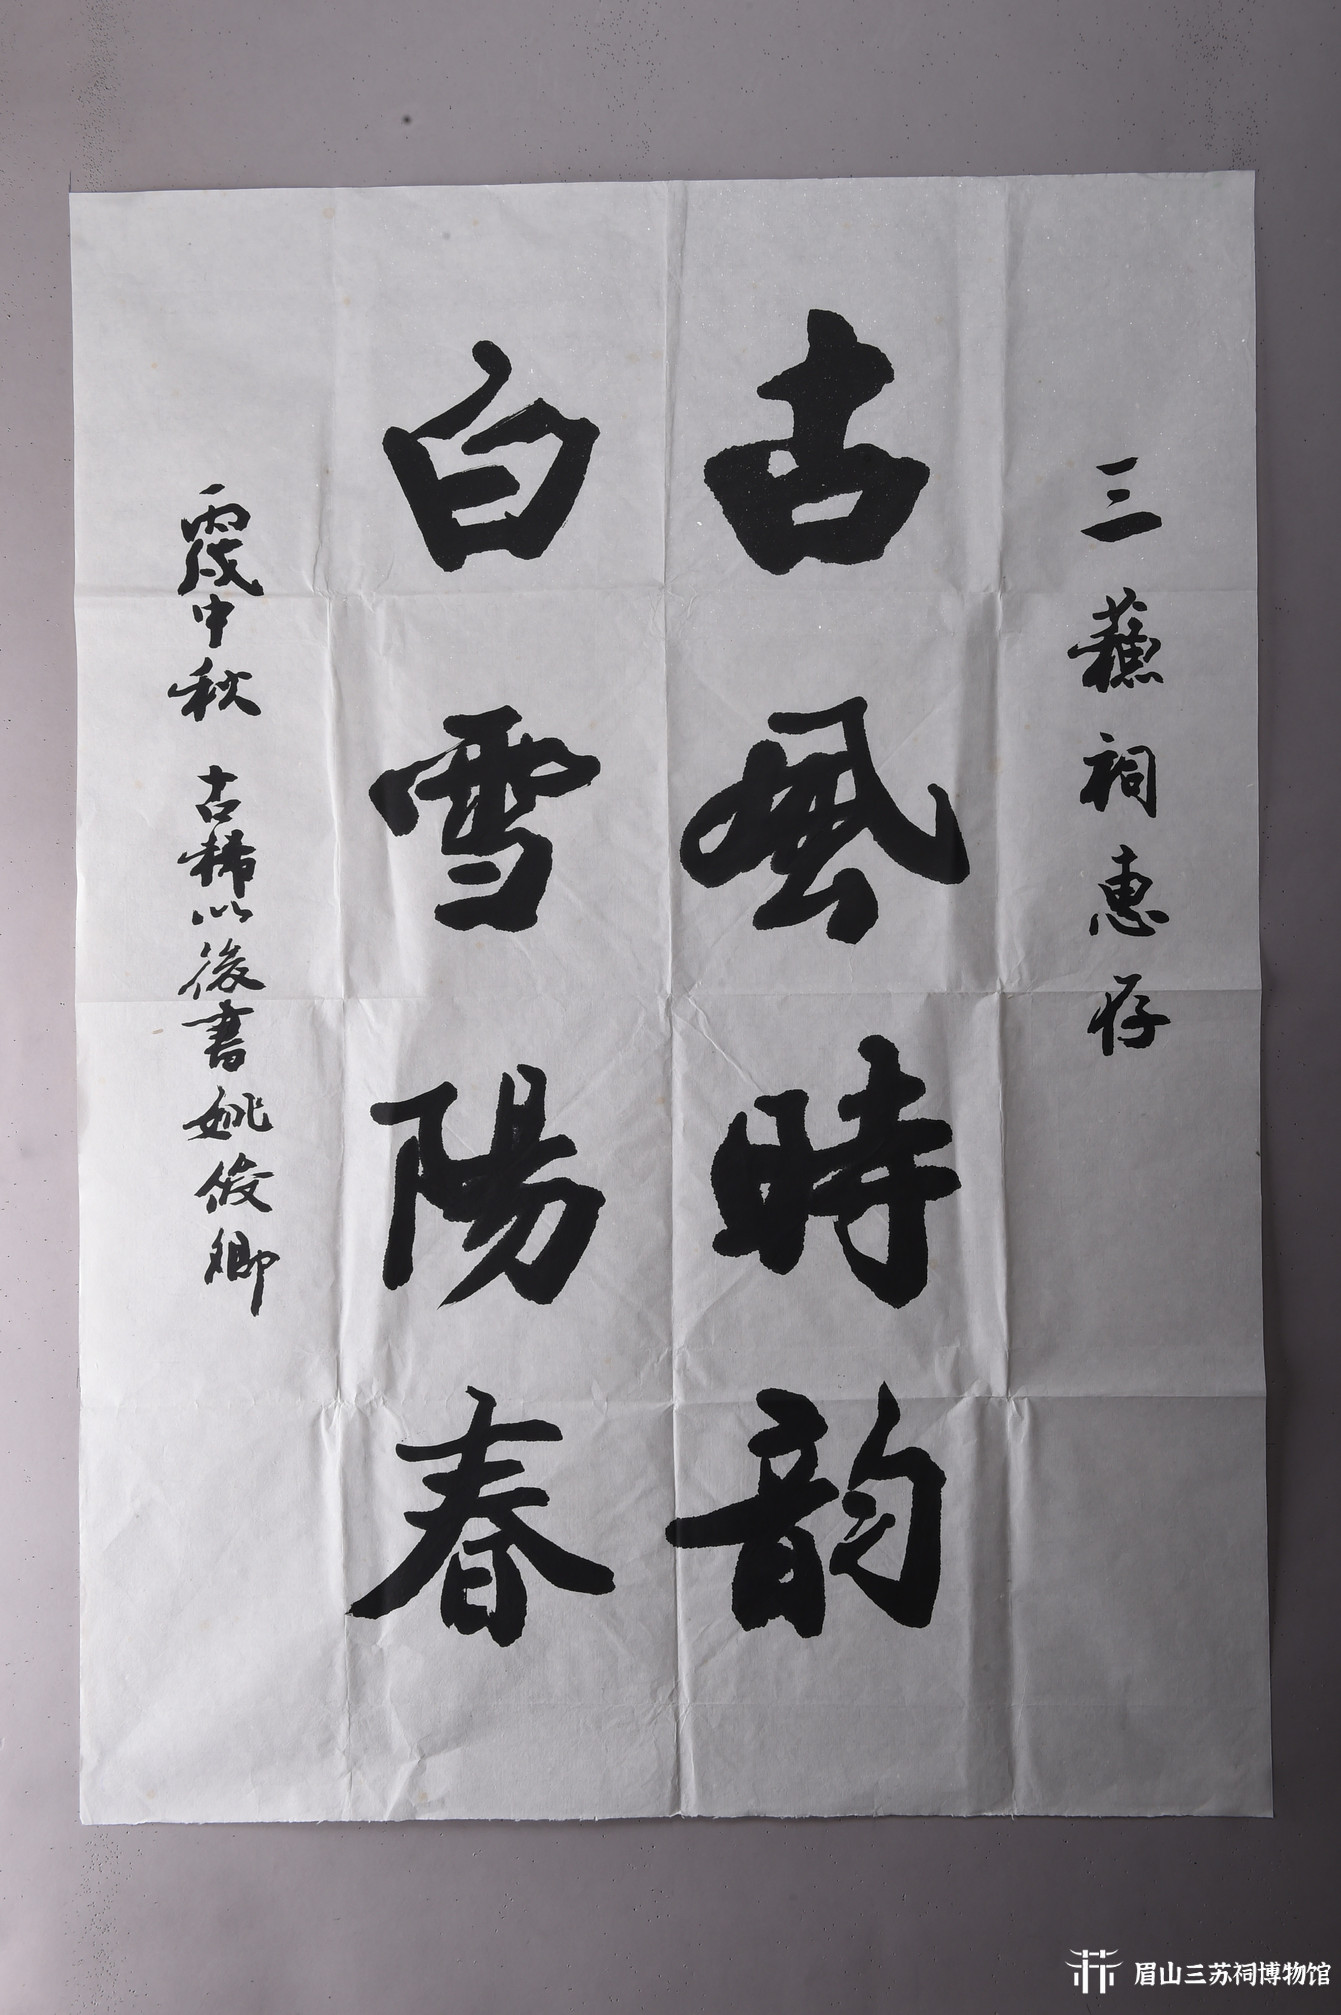 三蘇祠惠存
古風時韵
白雪陽春
丙戌中秋 古稀以後書姚俊卿
眉山三苏祠博物馆